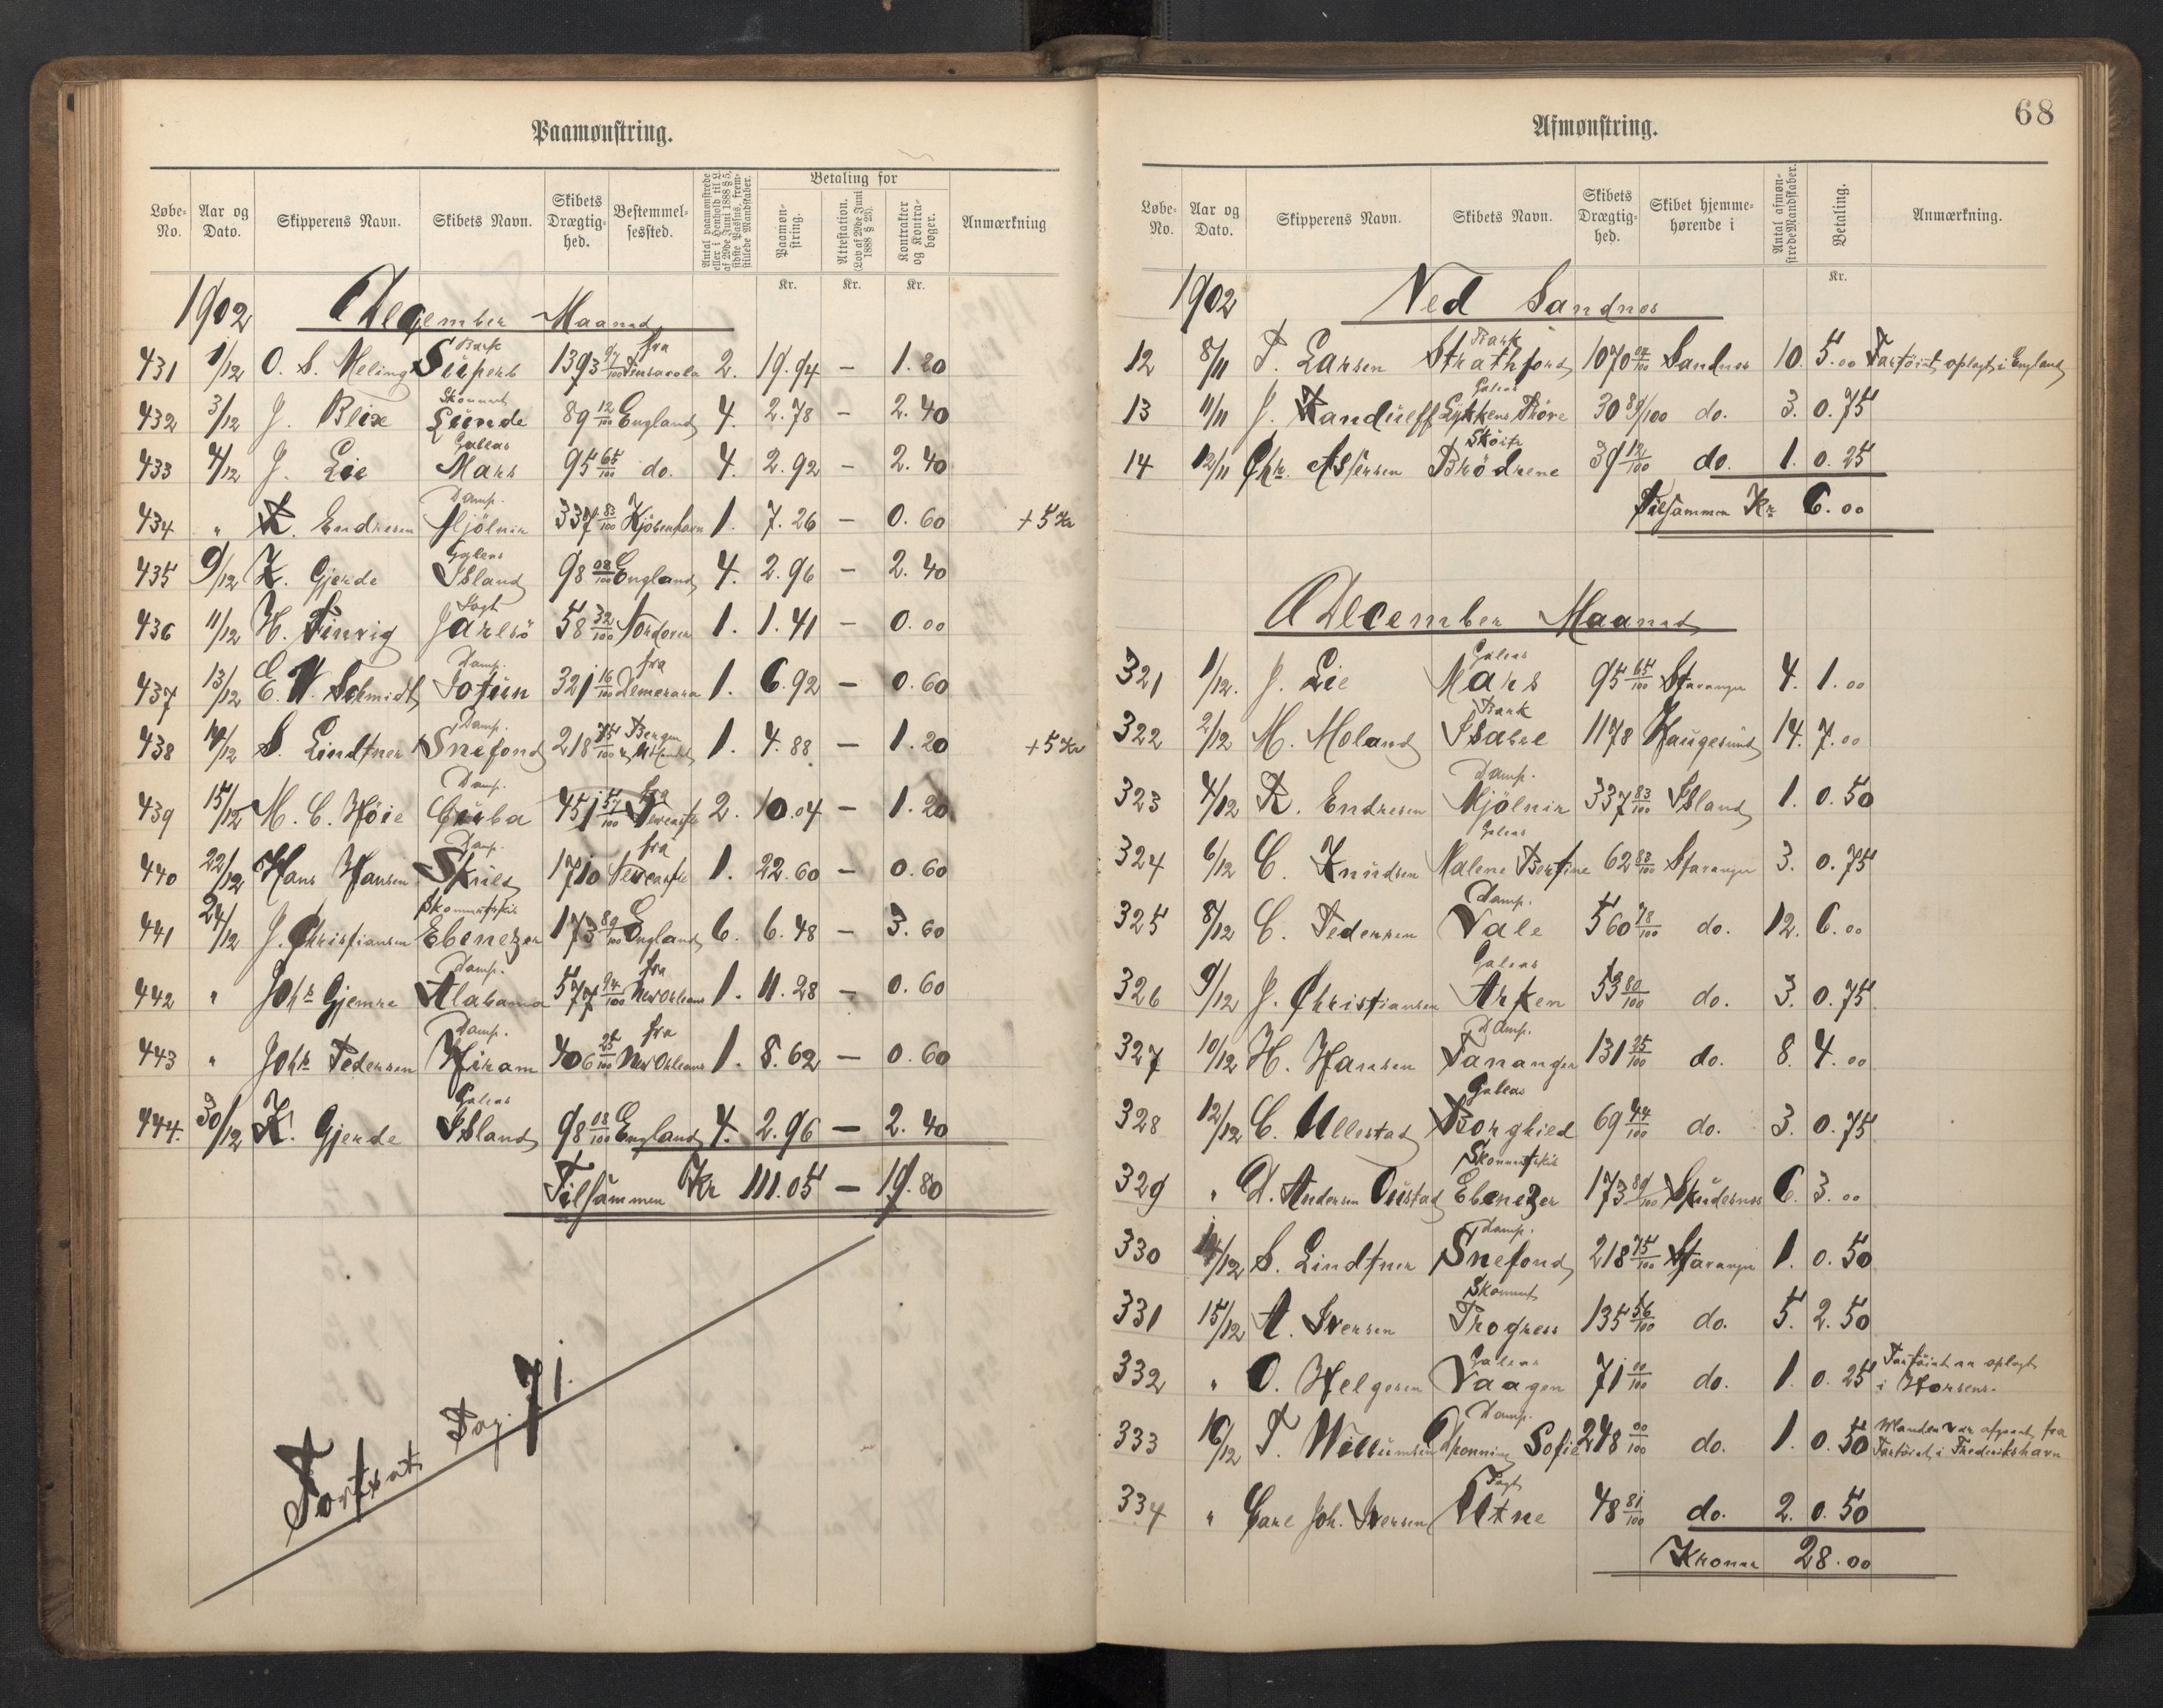 Paamønstring.
Løbe-No. Aar og Dato. Skipperens Navn. Skibets Navn. Skibets Drægtighed. Bestemmelsessted. Antal paamønstrede eller i Henhold til L. af 29de Juni 1888 § 5, sidste Passus, fremstillede Mandskaber. Betaling for Paamønstring. Attestation. (Lov af 29de Juni 1888 § 23). Kontrakter og Kontrabøger. Anmærkning
Kr. Kr. Kr.
1902 December Maaned
431 1/12 O. S. Meling Bark Superb 1393 97/100 fra Pensacola 2. 19.94 — 1.20
432 3/12 J. Blix Skonnert Lunde 89 12/100 England 4. 2.78 — 2.40
433 4/12 J. Lie Galeas Mars 95 65/100 do. 4. 2.92 — 2.40
434 " K. Endresen Damp. Mjölnir 337 83/100 Kjöbenhavn 1. 7.26 — 0.60 +5 Kr
435 9/12 K. Gjerde Galeas Island 98 08/100 England 4. 2.96 — 2.40
436 11/12 H. Finvig Jagt Jarlsö 58 32/100 1. 1.41 — 0.00
437 13/12 E. W. Schmidt Damp. Jotun 321 16/100 fra Demerara 1. 6.92 — 0.60
438 14/12 S. Lindtner Damp. Snefond 218 75/100 Bergen 1. 4.88 — 1.20 +5 Kr
439 15/12 M. C. Höie Damp. Cuba 451 57/100 fra Newcastle 2. 10.04 — 1.20
440 22/12 Hans Hansen Damp. Skuld 1710 fra Newcastle 1. 22.60 — 0.60
441 24/12 J. Christiansen Skonnertskib Ebenezer 173 89/100 England 6. 6.48 — 3.60
442 " Johs Gjemre Damp. Alabama 577 94/100 fra New Orleans 1. 11.28 — 0.60
443 " Johs Pedersen Damp. Hiram 406 25/100 fra New Orleans 1. 8.62 — 0.60
444. 30/12 K. Gjerde Galeas Island 98 08/100 England 4. 2.96 — 2.40
Tilsammen Kr 111.05 — 19.80
Fortsat Pag. 71.
68
Afmønstring.
Løbe-No. Aar og Dato. Skipperens Navn. Skibets Navn. Skibets Drægtighed. Skibet hjemmehørende i Antal afmønstrede Mandskaber. Betaling. Anmærkning.
Kr.
1902 Ved Sandnes
12 8/11 T. Larsen Bark Strathford 1070 04/100 Sandnes 10. 5.00 Fartöiet oplagt i England
13 11/11 J. Randulff Galeas Lykkens Pröve 30 89/100 do. 3. 0.75
14 12/11 Chr. Assersen Sköite Brödrene 39 12/100 do. 1. 0.25
Tilsammen Kr 6.00
December Maaned
321 1/12. J. Lie Galeas Mars 95 65/100 Stavanger 4. 1.00
322 2/12 M. Moland Bark Isabel 1178 Haugesund 14. 7.00
323 4/12 K. Endresen Damp. Mjölnir 337 83/100 Island 1. 0.50
324 6/12 C. Knudsen Galeas Malene Bertine 62 83/100 Stavanger 3. 0.75
325 8/12 C. Pedersen Damp. Vale 560 78/100 do. 12. 6.00
326 9/12 J. Christiansen Galeas Arken 53 80/100 do. 3. 0.75
327 10/12 H. Hansen Damp. Tananger 131 25/100 do. 8. 4.00
328 12/12 C. Ullestad Galeas Borghild 69 44/100 do. 3. 0.75
329 " D. Andersen Oustad Skonnertskib Ebenezer 173 89/100 Skudesnes 6. 3.00
330 14/12 S. Lindtner Damp. Snefond 218 75/100 Stavanger 1. 0.50
331 15/12 A. Iversen Skonnert Progress 135 56/100 do. 5. 2.50
332 " O. Helgesen Galeas Vaagen 71 00/100 do. 1. 0.25 Fartöiet er oplagt i Horsens.
333 16/12 T. Willumsen Damp. Dronning Sofie 248 00/100 do. 1. 0.50 Manden var afgaaet fra Fartöiet i Frederikshavn
334 " Carl Joh. Iversen Jagt Utne 48 81/100 do. 2. 0.50
Kroner 28.00